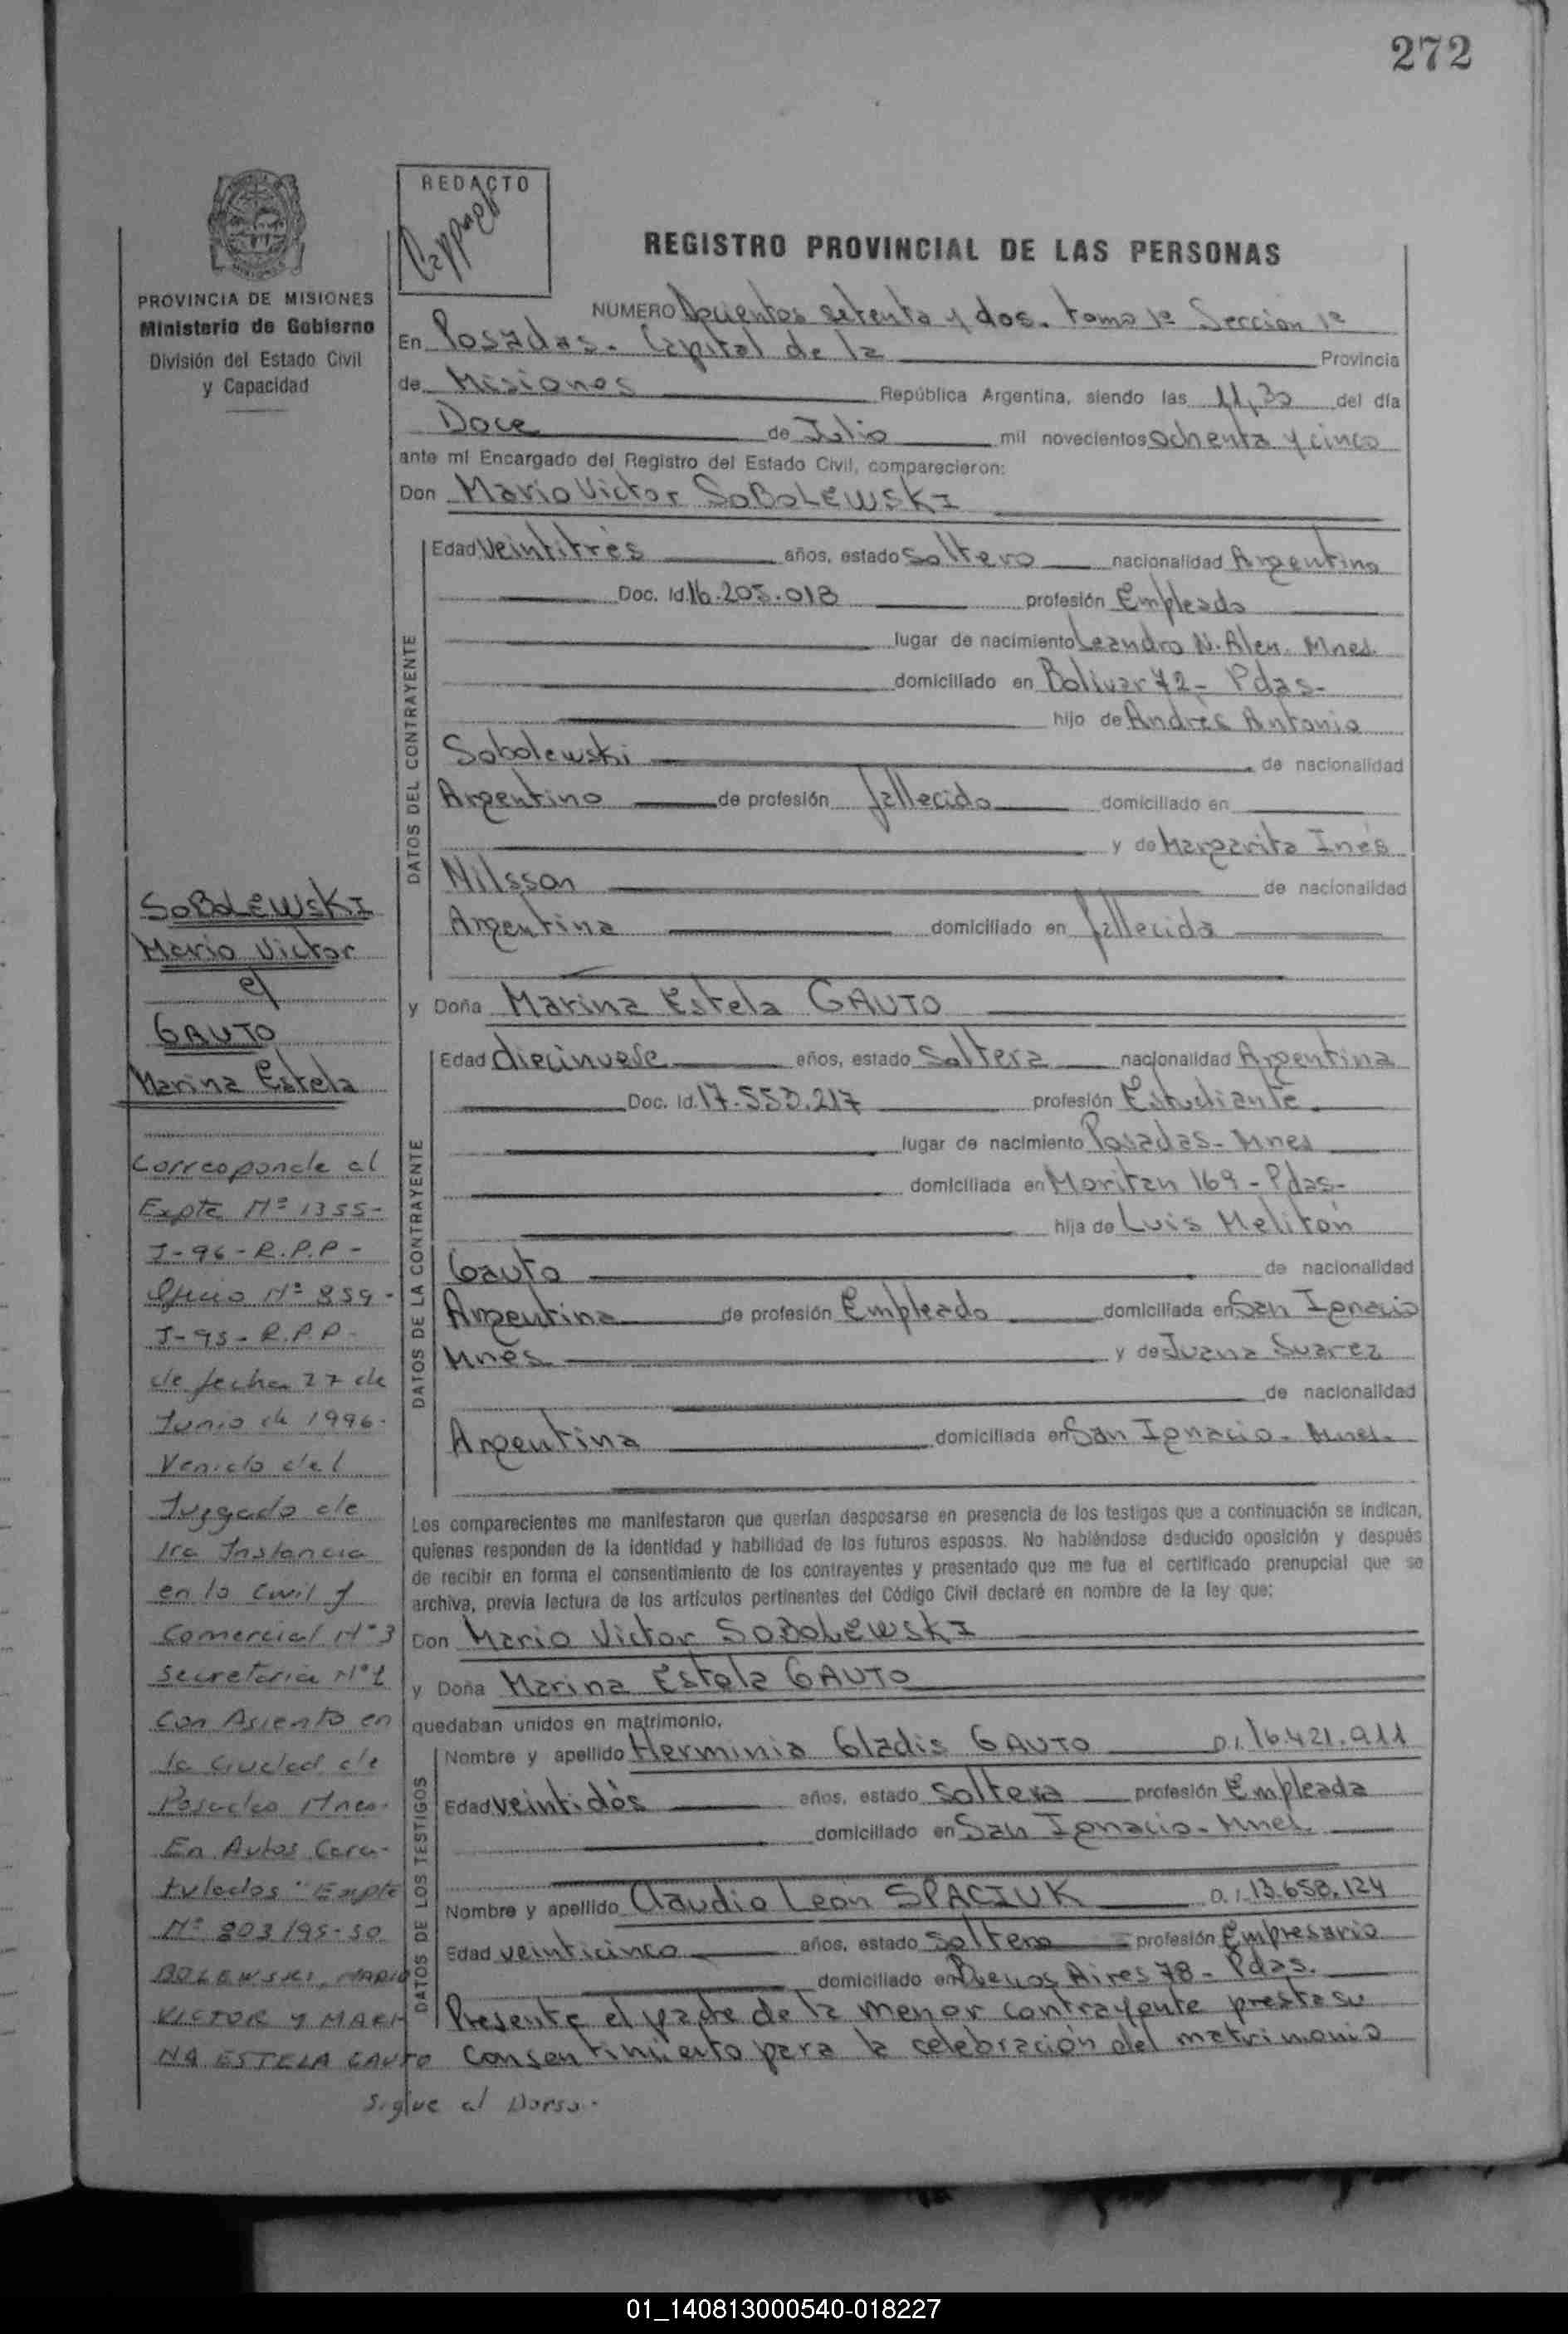 272
REDACTO
REGISTRO PROVINCIAL DE LAS PERSONAS
PROVINCIA DE MISIONES
Ministerio de Gobierno
División del Estado Civil
y Capacidad
NUMERO Docientos setenta y dos. tomo 1º Sección 1º
En Posadas. Capital de la Provincia
de Misiones República Argentina, siendo las 11,30 del día
Doce de Julio mil novecientos ochenta y cinco
ante mi Encargado del Registro del Estado Civil, comparecieron:
Don Mario Victor SOBOLEWSKI
DATOS DEL CONTRAYENTE
Edad Veintitrés años, estado Soltero nacionalidad Argentina
Doc. Id. 16.205.018 profesión Empleado
lugar de nacimiento Leandro N. Alem. Mnes.
domiciliado en Bolivar 72- Pdas-
hijo de Andrés Antonio
Sobolewski de nacionalidad
Argentino de profesión fallecido domiciliado en
y de Margarita Inés
Nilsson de nacionalidad
Argentina domiciliado en fallecida
y Doña Marina Estela GAUTO
DATOS DE LA CONTRAYENTE
Edad diecinueve años, estado Soltera nacionalidad Argentina
Doc. Id. 17.553.217 profesión Estudiante
lugar de nacimiento Posadas- Mnes
domiciliada en Moritan 169 - Pdas-
hija de Luis Melitón
Gauto de nacionalidad
Argentina de profesión Empleado domiciliada en San Ignacio
Mnes y de Juana Suarez
de nacionalidad
Argentina domiciliada en San Ignacio- Mnes.
Los comparecientes me manifestaron que querían desposarse en presencia de los testigos que a continuación se indican,
quienes responden de la identidad y habilidad de los futuros esposos. No habiéndose deducido oposición y después
de recibir en forma el consentimiento de los contrayentes y presentado que me fue el certificado prenupcial que se
archiva, previa lectura de los artículos pertinentes del Código Civil declaré en nombre de la ley que:
Don Mario Victor SOBOLEWSKI
y Doña Marina Estela GAUTO
quedaban unidos en matrimonio.
DATOS DE LOS TESTIGOS
Nombre y apellido Herminia Gladis GAUTO D.I. 16.421.911
Edad veintidós años, estado soltera profesión Empleada
domiciliado en San Ignacio- Mnes.
Nombre y apellido Claudio León SPACIUK D.I. 13.658.124
Edad veinticinco años, estado soltero profesión Empresario
domiciliado en Buenos Aires 78- Pdas.
Presente el padre de la menor contrayente presta su
consentimiento para la celebración del matrimonio
SOBOLEWSKI
Mario Victor
c/
GAUTO
Marina Estela
Corresponde al
Expte Nº 1355-
J-96-R.P.P-
Oficio Nº 859-
J-95-R.P.P-
de fecha 27 de
Junio de 1996-
Venido del
Juzgado de
1ra Instancia
en lo Civil y
Comercial Nº3
Secretaria Nº1
Con Asiento en
la Ciudad de
Posadas Mnes.
En Autos Cara-
tulados "Expte
Nº 803/95-SO
BOLEWSKI, MARIO
VICTOR Y MARI
NA ESTELA GAUTO
Sigue al Dorso-
01_140813000540-018227